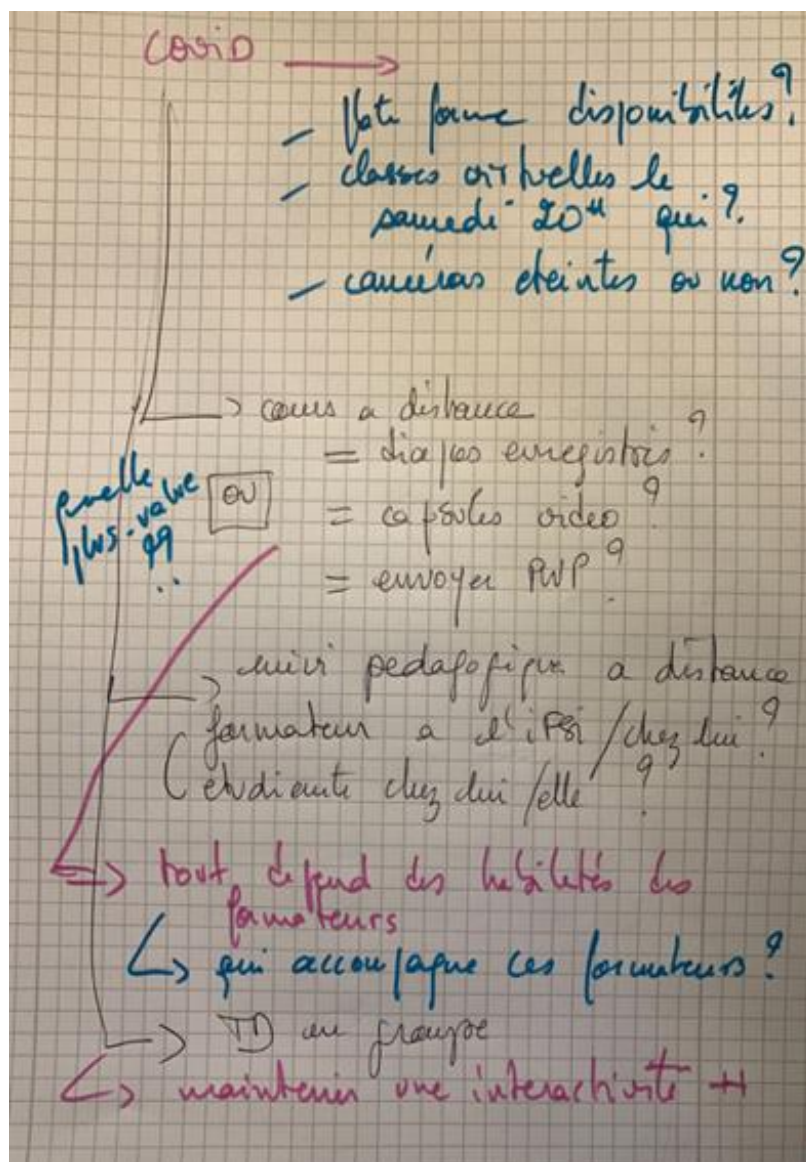 COVID →
– plate forme disponibilités ?
– classes virtuelles le
samedi 20H qui ?
– caméras éteintes ou non ?
→ cours a distance
= diapos enregistrés ?
quelle
plus-value
??
OU
= capsules video ?
= envoyer PWP ?
→ suivi pedagogique a distance
formateur a l'iFSi / chez lui ?
etudiante chez lui / elle ?
=> tout dépend des habiletés des
formateurs
↳ qui accompagne ces formateurs ?
→ TD en groupe
↳ maintenir une interactivité ++